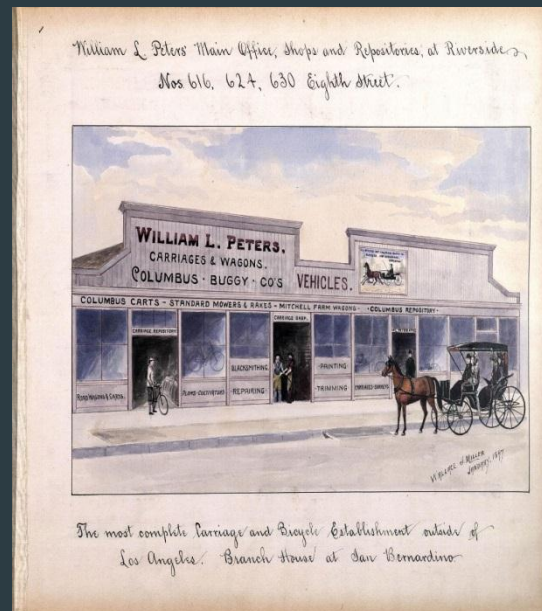 William L. Peters' Main Office, Shops and Repositories, at Riverside,
Nos 616, 624, 630 Eighth Street.
WILLIAM L. PETERS.
CARRIAGES & WAGONS.
COLUMBUS · BUGGY · CO'S VEHICLES.
COLUMBUS CARTS - STANDARD MOWERS & RAKES - MITCHELL FARM WAGONS - COLUMBUS REPOSITORY
CARRIAGE REPOSITORY
CARRIAGE SHOP.
BLACKSMITHING
PAINTING
ROAD WAGONS & CARTS.
PLOWS-CULTIVATORS
REPAIRING
TRIMMING
The most complete Carriage and Bicycle Establishment outside of
Los Angeles. Branch House at San Bernardino.